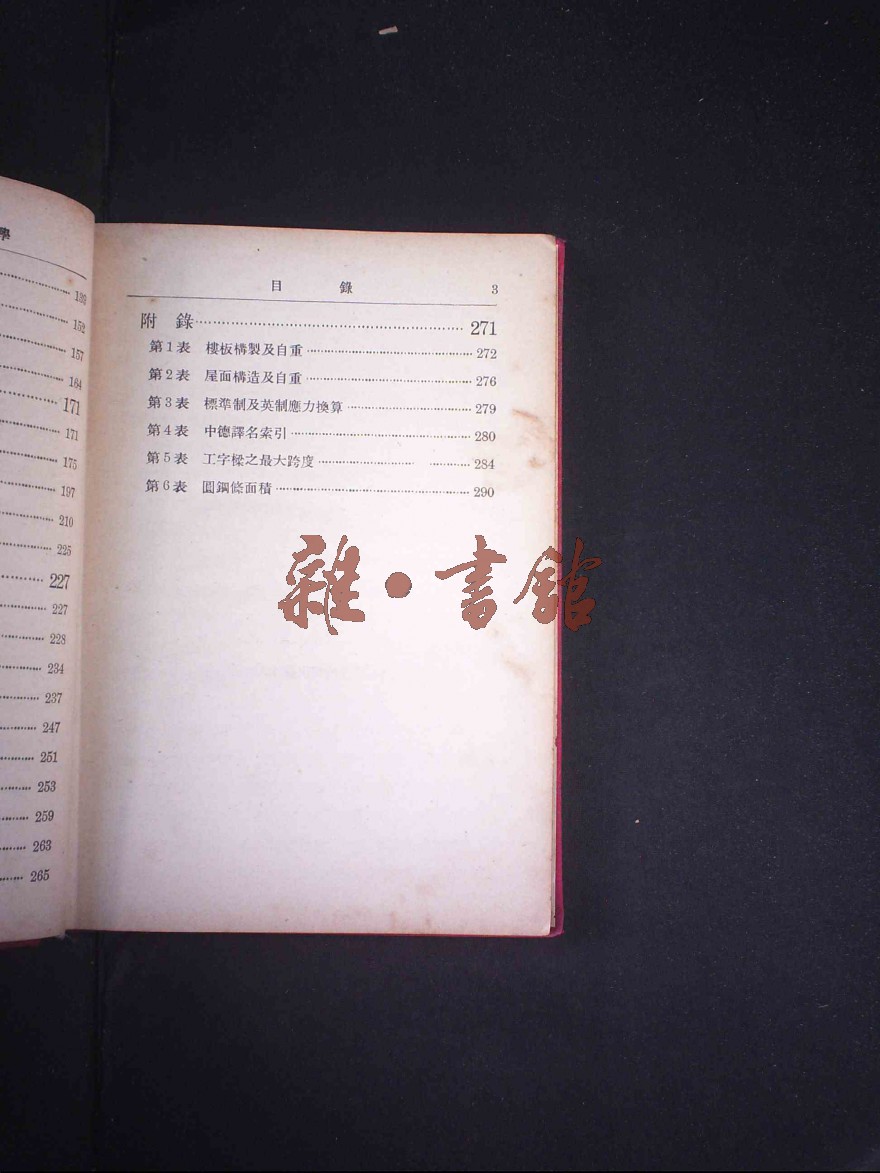 學
139
152
157
164
171
171
175
197
210
225
227
227
228
234
237
247
251
253
259
263
265
目 錄 3
附 錄 271
第1表 樓板構製及自重 272
第2表 屋面構造及自重 276
第3表 標準制及英制應力換算 279
第4表 中德譯名索引 280
第5表 工字樑之最大跨度 284
第6表 圓鋼條面積 290
雜·書館